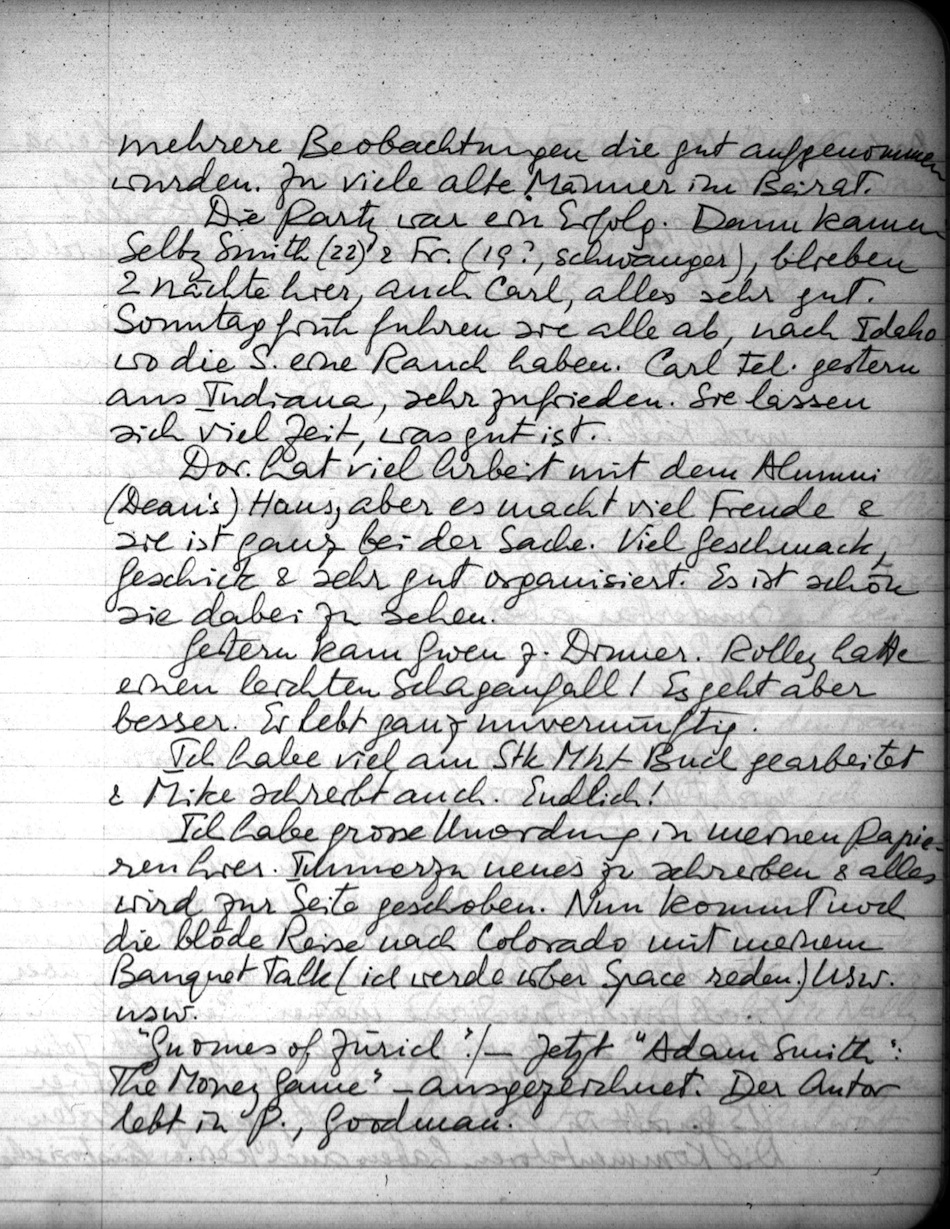 mehrere Beobachtungen die gut aufgenommen
wurden. Zu viele alte Männer im Beirat.
Die Party war ein Erfolg. Dann kamen
Selby Smith (22) & Fr. (19?, schwanger), blieben
2 nächte hier, auch Carl, alles sehr gut.
Sonntag früh fuhren sie alle ab, nach Idaho
wo die S. eine Ranch haben. Carl tel. gestern
aus Indiana, sehr zufrieden. Sie lassen
sich viel Zeit, was gut ist.
Dor. hat viel Arbeit mit dem Alumni
(Dean's) Haus, aber es macht viel Freude &
sie ist ganz bei der Sache. Viel Geschmack,
Geschick & sehr gut organisiert. Es ist schön
sie dabei zu sehen.
Gestern kam Gwen z. Dinner. Rolley hatte
einen leichten Schaganfall! Es geht aber
besser. Er lebt ganz unvernünftig.
Ich habe viel am Stk Mkt Buch gearbeitet
& Mike schreibt auch. Endlich!
Ich habe grosse Unordnung in meinen Papie-
ren hier. Immerzu neues zu schreiben & alles
wird zur Seite geschoben. Nun kommt noch
die blöde Reise nach Colorado mit meinem
Banquet Talk (ich werde über Space reden.) Usw.
usw.
"Gnomes of Zürich"! – Jetzt "Adam Smith":
The Money Game" – ausgezeichnet. Der Autor
lebt in P., Goodman.